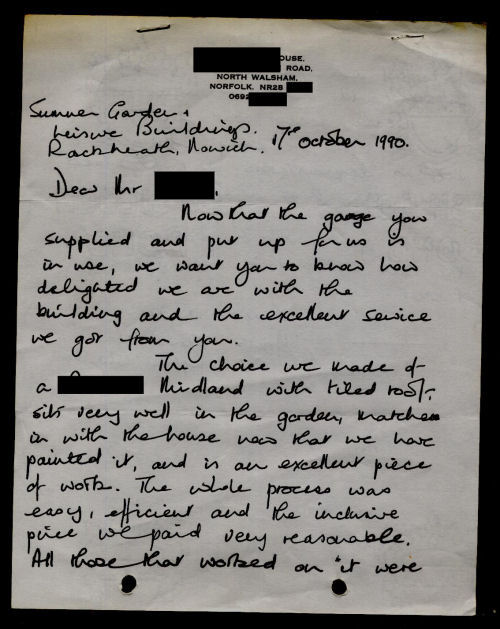 OUSE.
ROAD,
NORTH WALSHAM,
NORFOLK. NR28
0692
Summer Garden &
Leisure Buildings.
Rackheath, Norwich. 17th October 1990.
Dear Mr
Now that the garage you
supplied and put up for us is
in use, we want you to know how
delighted we are with the
building and the excellent service
we got from you.
The choice we made of
a Midland with tiled roof,
sits very well in the garden, matches
in with the house now that we have
painted it, and is an excellent piece
of work. The whole process was
easy, efficient and the inclusive
price we paid very reasonable.
All those that worked on it were